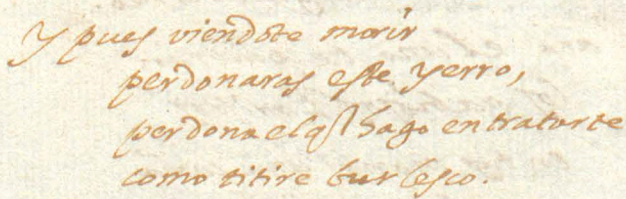 Y pues viendote morir
perdonaras este yerro,
perdona el q̃ hago en tratarte
como titire burlesco.